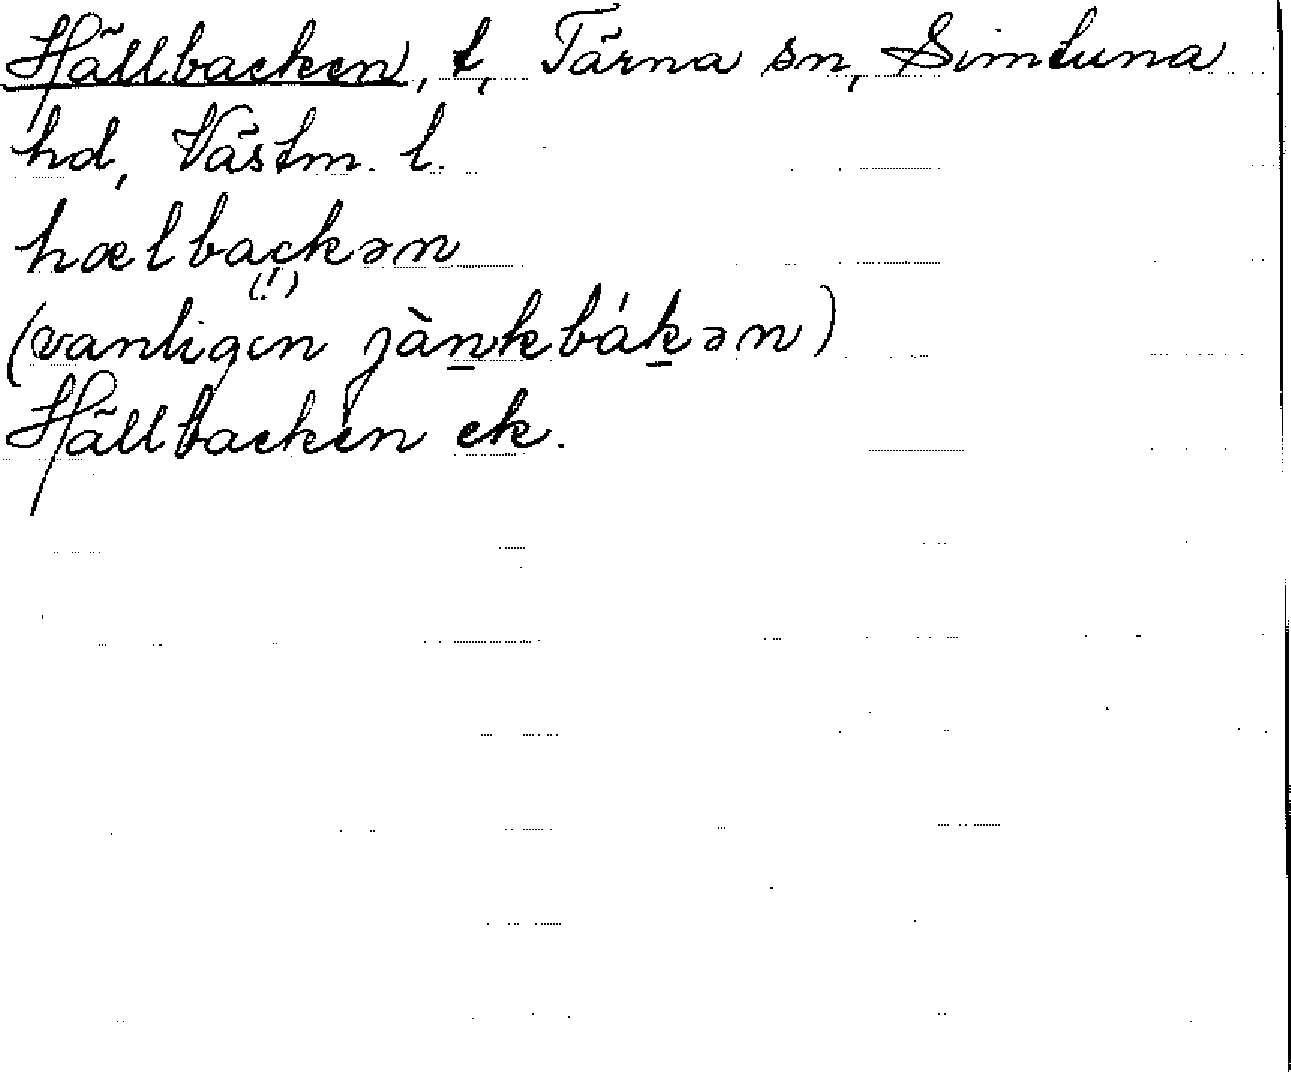 Hällbacken, t, Tärna sn, Simtuna
hd, Västm. l.
hælbackən
(!)
(vanligen jànkbákən)
Hällbacken ek.